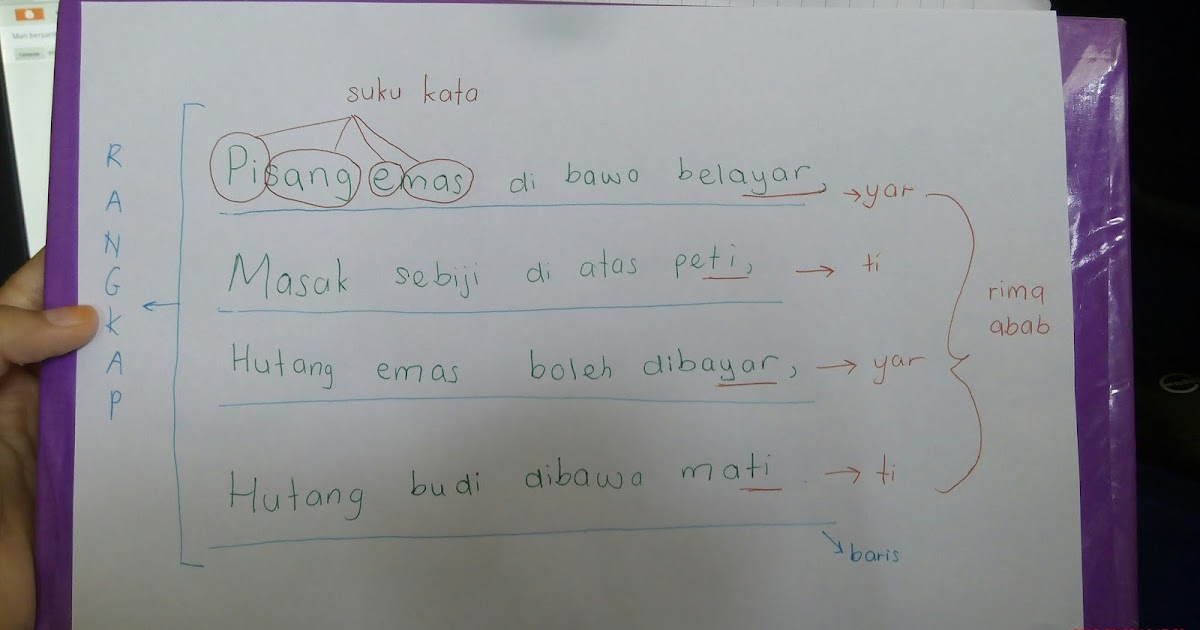 suku kata
Pisang emas di bawa belayar, → yar
Masak sebiji di atas peti, → ti
Hutang emas boleh dibayar, → yar
Hutang budi dibawa mati. → ti
rima
abab
RANGKAP
baris